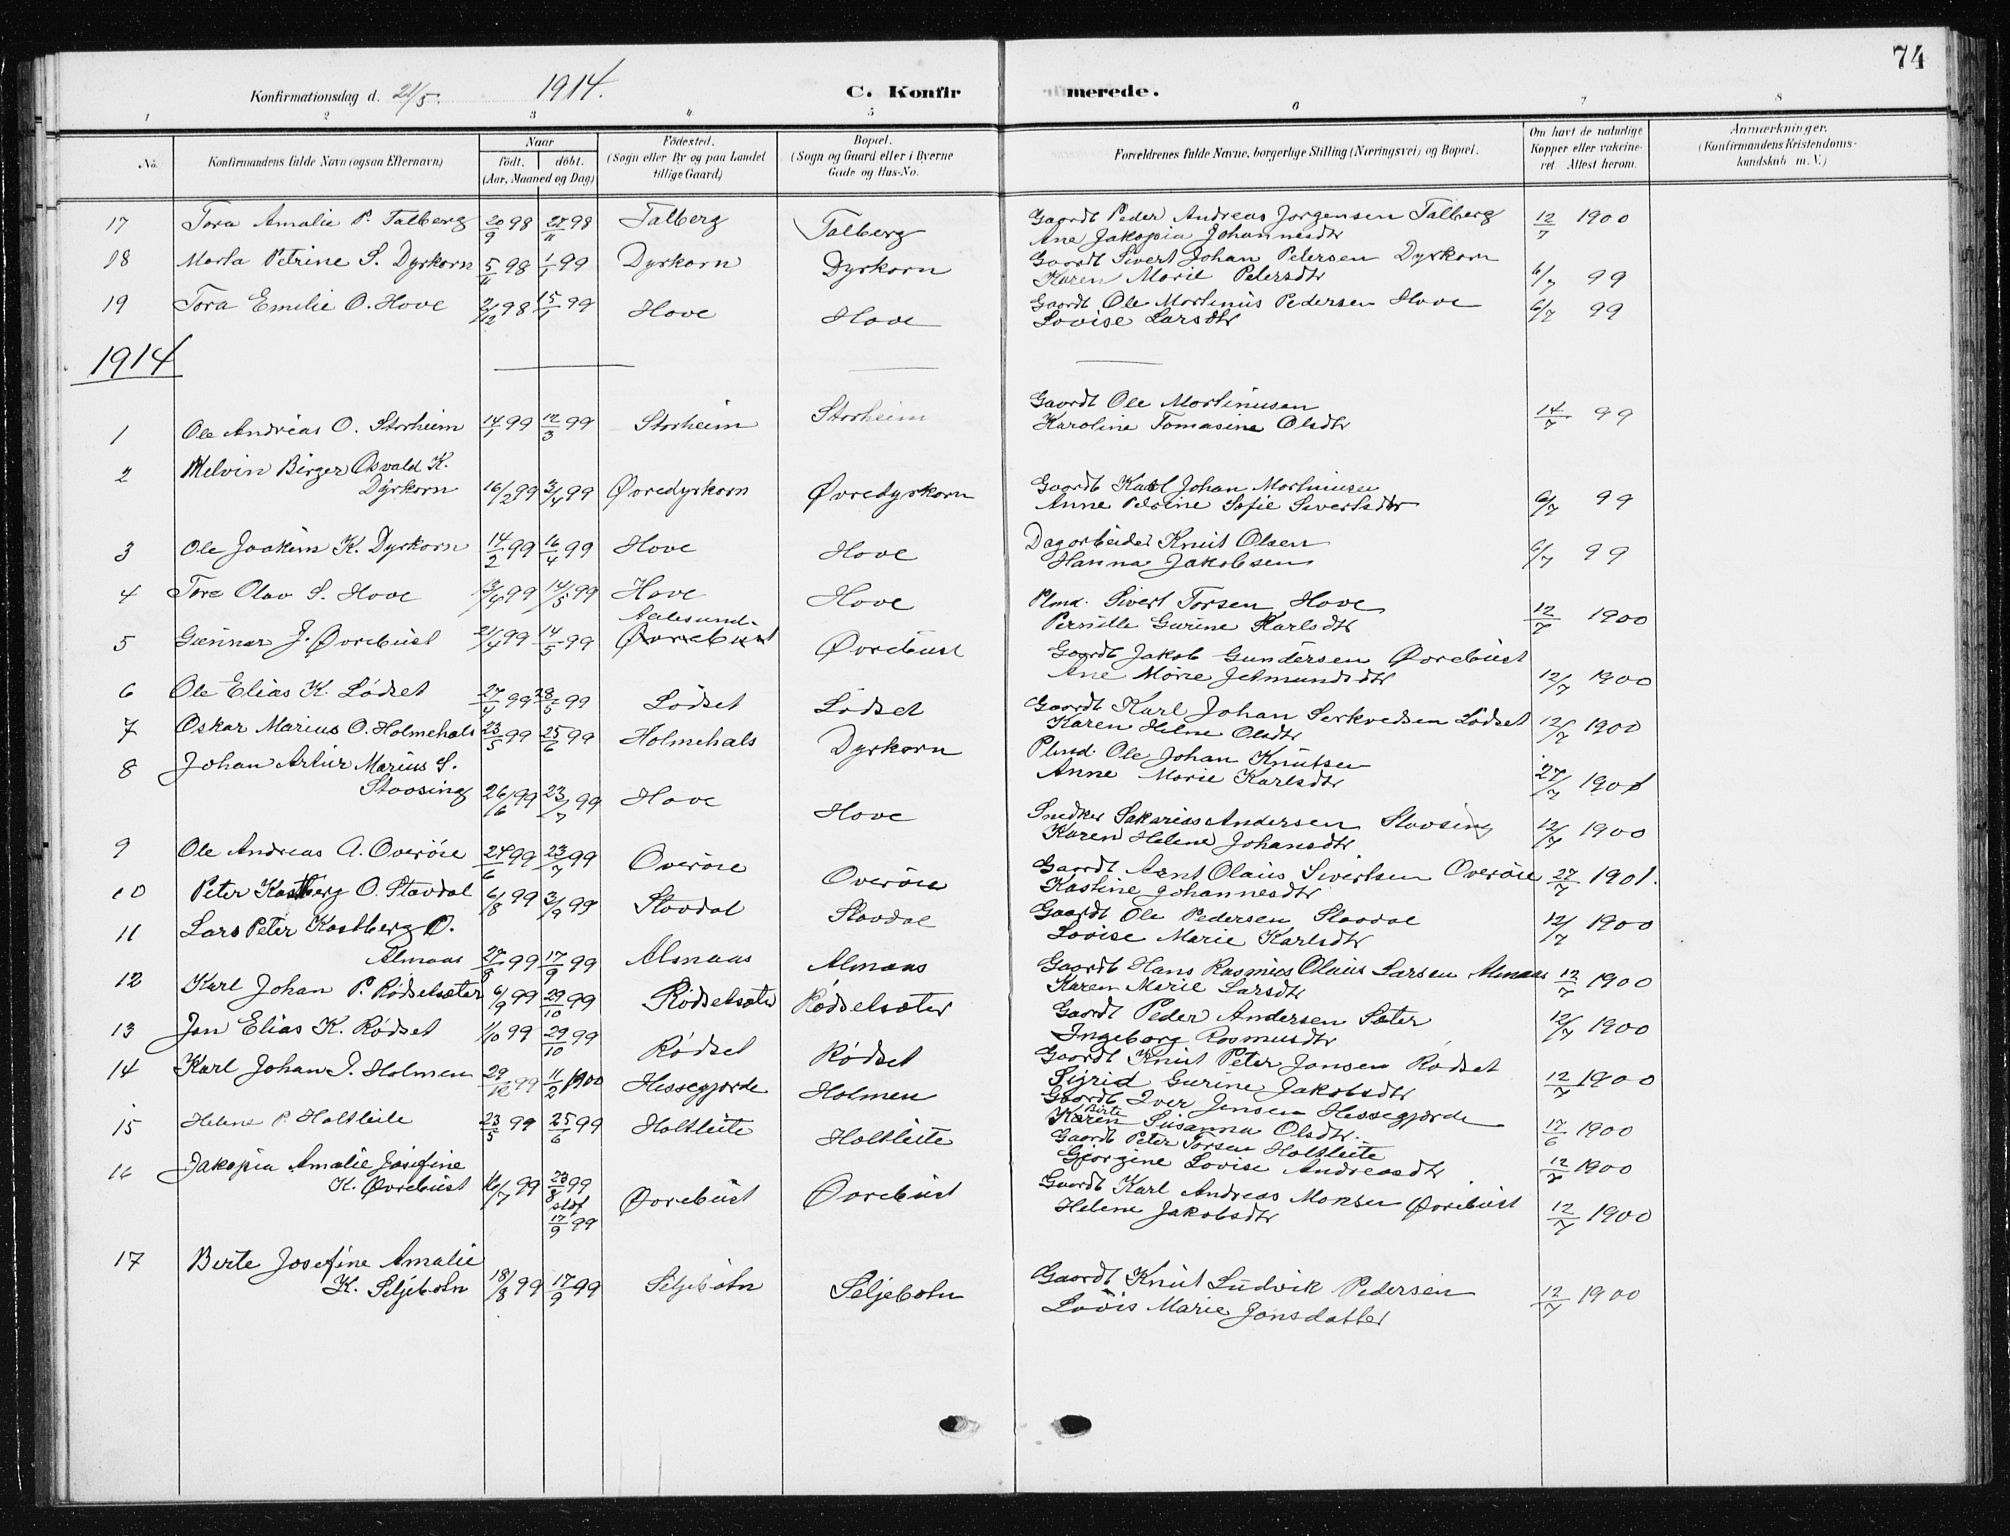 74
Konfirmationsdag d. 21/5. 1914. C. Konfirmerede.
1 2 3 4 5 6 7 8
No. Konfirmandens fulde Navn (ogsaa Efternavn) Naar født. døbt. (Aar, Maaned og Dag) Fødested. (Sogn eller By og paa Landet tillige Gaard) Bopæl. (Sogn og Gaard eller i Byerne Gade og Hus-No. Forældrenes fulde Navne, borgerlige Stilling (Næringsvei) og Bopæl. Om havt de naturlige Kopper eller vakcineret Attest herom. Anmærkninger. (Konfirmandens Kristendomskundskab m. V.)
17 Tora Amalie P. Talberg 20/9 98 27/11 98 Talberg Talberg Gaardb Peder Andreas Jørgensen Talberg 12/7 1900
Ane Jakopia Johannesdtr
18 Marta Petrine S. Dyrkorn 5/11 98 1/1 99 Dyrkorn Dyrkorn Gaardb Sivert Johan Petersen Dyrkorn 6/7 99
Karen Marie Petersdtr
19 Tora Emilie O. Hove 2/12 98 15/1 99 Hove Hove Gaardb Ole Martinus Pedersen Hove 6/7 99
Lovise Larsdtr
1914
1 Ole Andreas O. Storheim 14/1 99 12/3 99 Storheim Storheim Gaardb Ole Martinusen 14/7 99
Karoline Tomasine Olsdtr
2 Melvin Birger Osvald K.
Dyrkorn 16/2 99 3/4 99 Øvredyrkorn Øvredyrkorn Gaardb Karl Johan Martinusen 6/7 99
Anne Petrine Sofie Sivertsdtr
3 Ole Joakim K. Dyrkorn 14/2 99 16/4 99 Hove Hove Dagarbeider Knut Olsen 6/7 99
Hanna Jakobsen
4 Tore Olav S. Hove 13/4 99 14/5 99 Hove Hove Plmd. Sivert Torsen Hove 12/7 1900
Pernille Gurine Karlsdtr
Aalesund
5 Gunnar J. Øvrebust 21/4 99 14/5 99 Øvrebust Øvrebust Gaardb Jakob Gundersen Øvrebust 12/7 1900
Ane Marie Jetmundsdtr
6 Ole Elias K. Lødset 27/4 99 28/5 99 Lødset Lødset Gaardb Karl Johan Serkvedsen Lødset 12/7 1900
Karen Helene Olsdtr
7 Oskar Marius O. Holmehals 23/5 99 25/6 99 Holmehals Dyrkorn Plmd. Ole Johan Knutsen 27/7 1901
Anne Marie Karlsdtr
8 Johan Artur Marius S.
Stavsing 26/6 99 23/7 99 Hove Hove Snedker Sakarias Andersen Stavseng 12/7 1900
Karen Helene Johansdtr
9 Ole Andreas A. Overøie 24/6 99 23/7 99 Overøie Overøie Gaardb Arnt Olaus Sivertsen Overøie 27/7 1901.
Kastine Johannesdtr
10 Peter Kastberg O. Stavdal 6/8 99 3/9 99 Stavdal Stavdal Gaardb Ole Pedersen Stavdal 12/7 1900
Lovise Marie Karlsdtr
11 Lars Peter Kastberg O.
Almaas 27/8 99 17/9 99 Almaas Almaas Gaardb Hans Rasmus Olaus Larsen Almaas 12/7 1900
Karen Marie Larsdtr
12 Karl Johan P. Rødselsæter 6/9 99 29/10 99 Rødselsæter Rødselsæter Gaardb Peder Andersen Sæter 12/7 1900
Ingeborg Rasmusdtr
13 Jon Elias K. Rødset 1/10 99 29/10 99 Rødset Rødset Gaardb Knut Peter Jonsen Rødset 12/7 1900
Sigrid Gurine Jakobsdtr
14 Karl Johan I. Holmen 29/12 99 11/2 1900 Hessegjærde Holmen Gaardb Iver Jensen Hessegjærde 17/6 1900
Birte
Karen Susanna Olsdtr.
15 Helene P. Holtleite 23/5 99 25/6 99 Holtleite Holtleite Gaardb Peter Torsen Holtleite 12/7 1900
Georgine Lovise Andreasdtr
16 Jakopia Amalie Josefine
K. Øvrebust 16/7 99 23/8 99 Øvrebust Øvrebust Gaardb Karl Andreas Monsen Øvrebust 12/7 1900
stdf 17/9 99 Helene Jakobsdtr
17 Berte Josefine Amalie
K. Seljebotn 18/8 99 17/9 99 Seljebotn Seljebotn Gaardb Knut Ludvik Pedersen 12/7 1900
Lovis Marie Jonsdatter